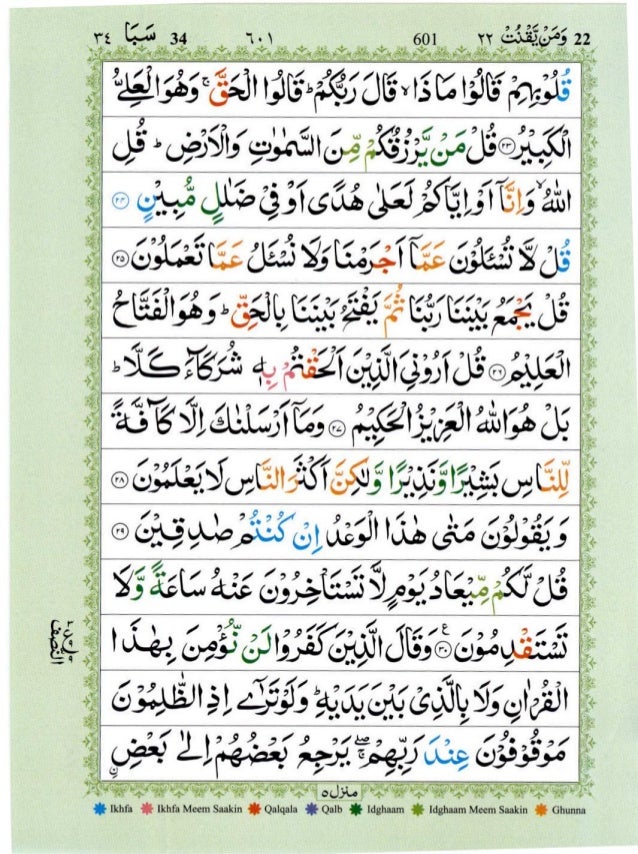 ٣٤ سَبَا 34 ٦٠١ 601 وَمَنْ يَّقْنُتْ ٢٢ 22
قُلُوْبِهِمْ قَالُوْا مَاذَا ۙ قَالَ رَبُّكُمْ ؕ قَالُوا الْحَقَّ ۚ وَهُوَ الْعَلِىُّ
الْكَبِيْرُ ﴿۲۳﴾ قُلْ مَنْ يَّرْزُقُكُمْ مِّنَ السَّمٰوٰتِ وَالْاَرْضِ ؕ قُلِ
اللّٰهُ ۙ وَاِنَّاۤ اَوْ اِيَّاكُمْ لَعَلٰى هُدًى اَوْ فِىْ ضَلٰلٍ مُّبِيْنٍ ﴿۲۴﴾
قُلْ لَّا تُسْـَٔلُوْنَ عَمَّاۤ اَجْرَمْنَا وَلَا نُسْـَٔلُ عَمَّا تَعْمَلُوْنَ ﴿۲۵﴾
قُلْ يَجْمَعُ بَيْنَنَا رَبُّنَا ثُمَّ يَفْتَحُ بَيْنَنَا بِالْحَقِّ ؕ وَهُوَ الْفَتَّاحُ
الْعَلِيْمُ ﴿۲۶﴾ قُلْ اَرُوْنِىَ الَّذِيْنَ اَلْحَقْتُمْ بِهٖ شُرَكَآءَ كَلَّا ؕ
بَلْ هُوَ اللّٰهُ الْعَزِيْزُ الْحَكِيْمُ ﴿۲۷﴾ وَمَاۤ اَرْسَلْنٰكَ اِلَّا كَآفَّةً
لِّلنَّاسِ بَشِيْرًا وَّنَذِيْرًا وَّلٰكِنَّ اَكْثَرَ النَّاسِ لَا يَعْلَمُوْنَ ﴿۲۸﴾
وَيَقُوْلُوْنَ مَتٰى هٰذَا الْوَعْدُ اِنْ كُنْتُمْ صٰدِقِيْنَ ﴿۲۹﴾
قُلْ لَّكُمْ مِّيْعَادُ يَوْمٍ لَّا تَسْتَاْخِرُوْنَ عَنْهُ سَاعَةً وَّلَا
تَسْتَقْدِمُوْنَ ﴿۳۰﴾ ع وَقَالَ الَّذِيْنَ كَفَرُوْا لَنْ نُّؤْمِنَ بِهٰذَا
الْقُرْاٰنِ وَلَا بِالَّذِىْ بَيْنَ يَدَيْهِ ؕ وَلَوْ تَرٰٓى اِذِ الظّٰلِمُوْنَ
مَوْقُوْفُوْنَ عِنْدَ رَبِّهِمْ ۖۚ يَرْجِعُ بَعْضُهُمْ اِلٰى بَعْضِ ن
النصف
منزل ٥
Ikhfa Ikhfa Meem Saakin Qalqala Qalb Idghaam Idghaam Meem Saakin Ghunna